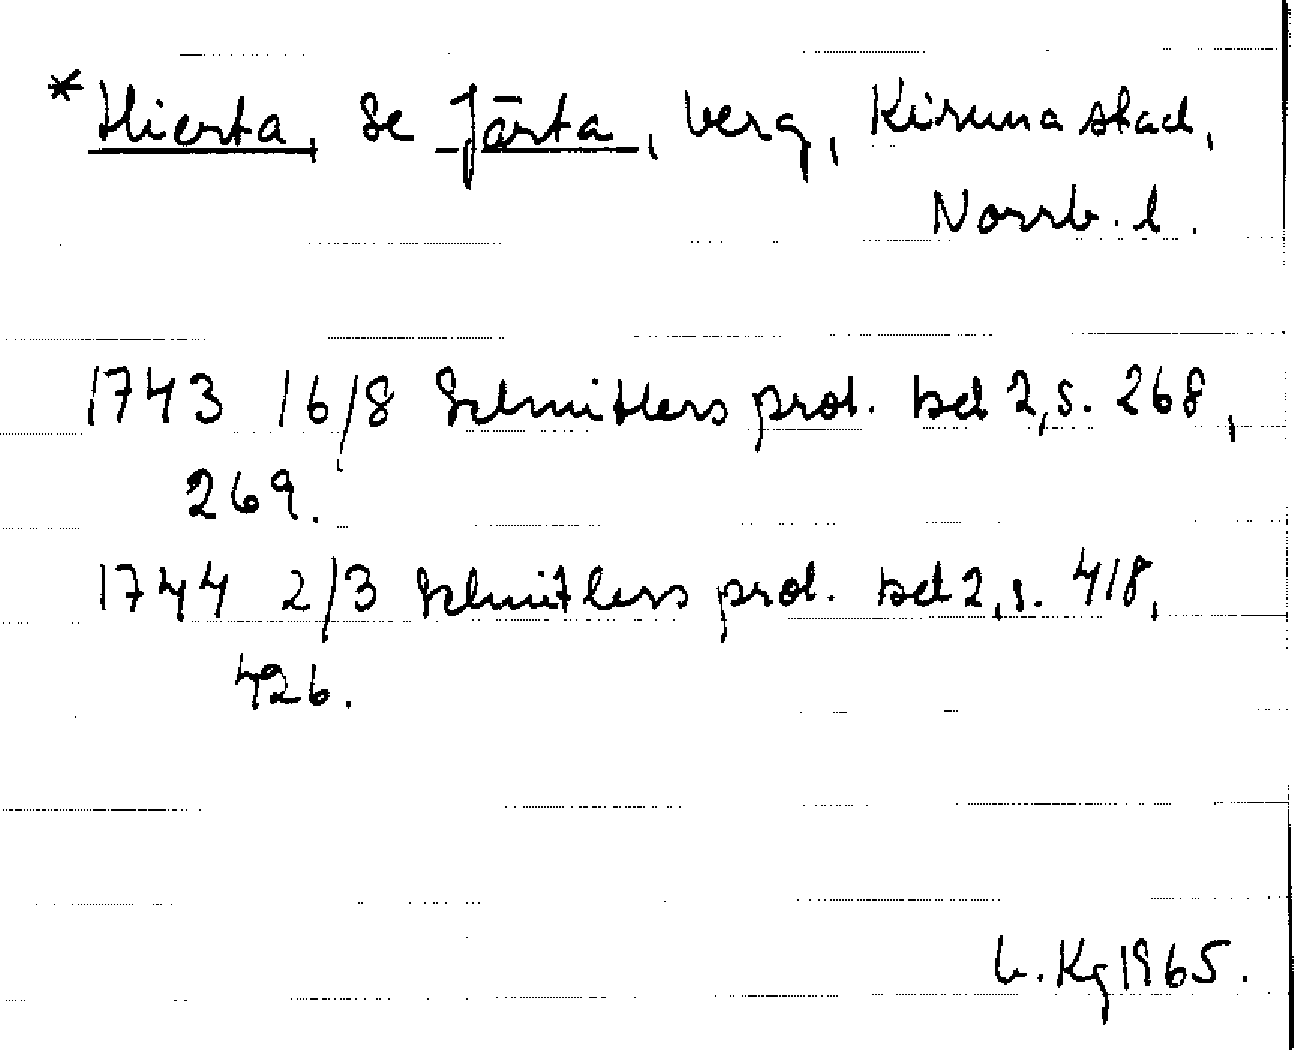 *Hierta, se Järta, berg, Kiruna stad,
Norrb. l.
1743 16/8 Schnitlers prot. bd 2, s. 268,
269.
1744 2/3 Schnitlers prot. bd 2, s. 418,
426.
L. Kg 1965.